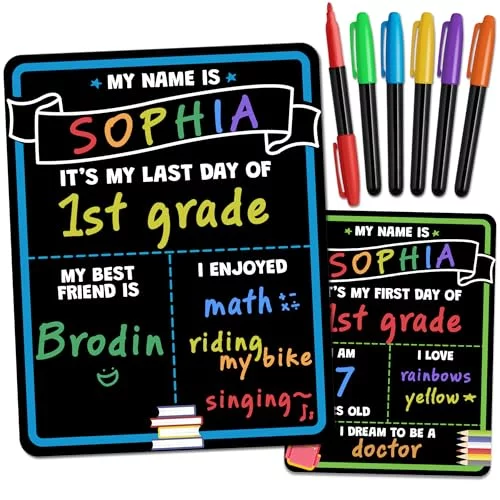 MY NAME IS
SOPHIA
IT'S MY LAST DAY OF
1st grade
MY BEST
FRIEND IS
Brodin
I ENJOYED
math
riding
my bike
singing
MY NAME IS
SOPHIA
'S MY FIRST DAY OF
1st grade
I AM
7
RS OLD
I LOVE
rainbows
yellow
I DREAM TO BE A
doctor